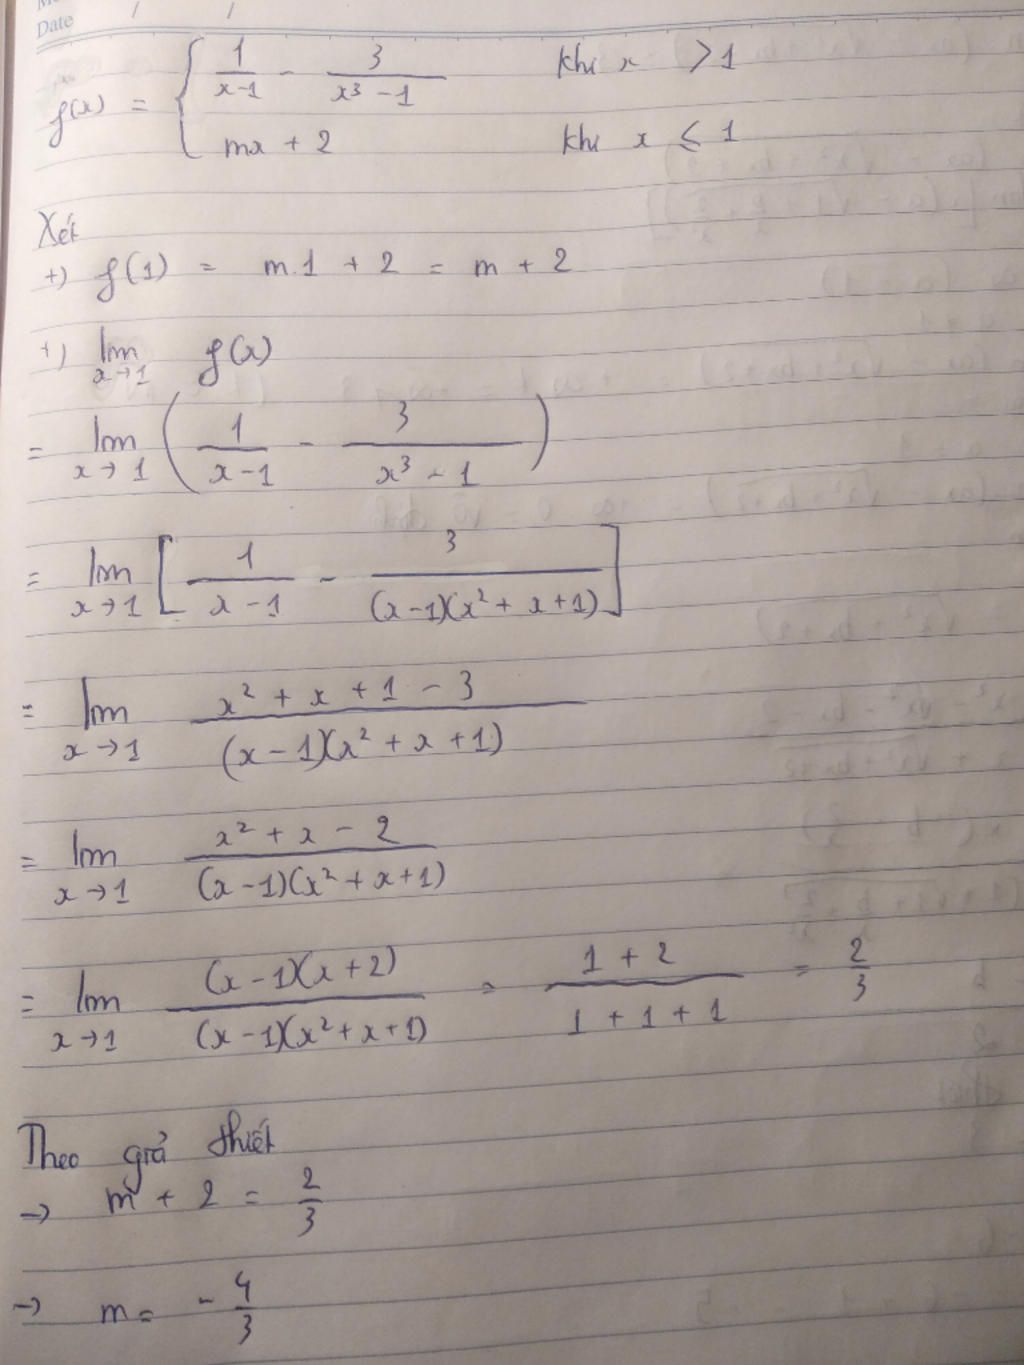 Date / /
f(x) = { 1/(x-1) - 3/(x³-1) khi x > 1
mx + 2 khi x ≤ 1
Xét
+) f(1) = m.1 + 2 = m + 2
+) lim x→1 f(x)
= lim x→1 ( 1/(x-1) - 3/(x³-1) )
= lim x→1 [ 1/(x-1) - 3/((x-1)(x²+x+1)) ]
= lim x→1 (x²+x+1-3)/((x-1)(x²+x+1))
= lim x→1 (x²+x-2)/((x-1)(x²+x+1))
= lim x→1 ((x-1)(x+2))/((x-1)(x²+x+1)) = (1+2)/(1+1+1) = 2/3
Theo giả thiết
→ m + 2 = 2/3
→ m = -4/3